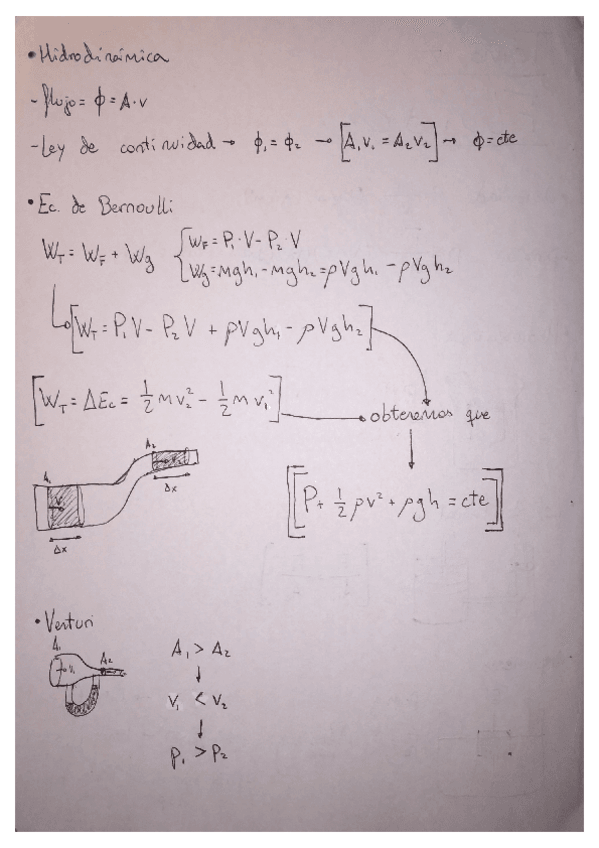 • Hidrodinámica
- flujo = ϕ = A·v
- Ley de continuidad → ϕ₁ = ϕ₂ → [A₁v₁ = A₂v₂] → ϕ = cte
• Ec. de Bernoulli
W_T = W_F + W_g { W_F = P₁·V - P₂·V
W_g = mgh₁ - mgh₂ = ρVgh₁ - ρVgh₂
[W_T = P₁V - P₂V + ρVgh₁ - ρVgh₂]
[W_T = ΔE_c = 1/2 m v₂² - 1/2 m v₁²] → obtenemos que
A₂
A₁
v₂
Δx
v₁
Δx
[[P + 1/2 ρv² + ρgh = cte]]
• Venturi
A₁ A₂
A₁ > A₂
↓
v₁ < v₂
↓
P₁ > P₂